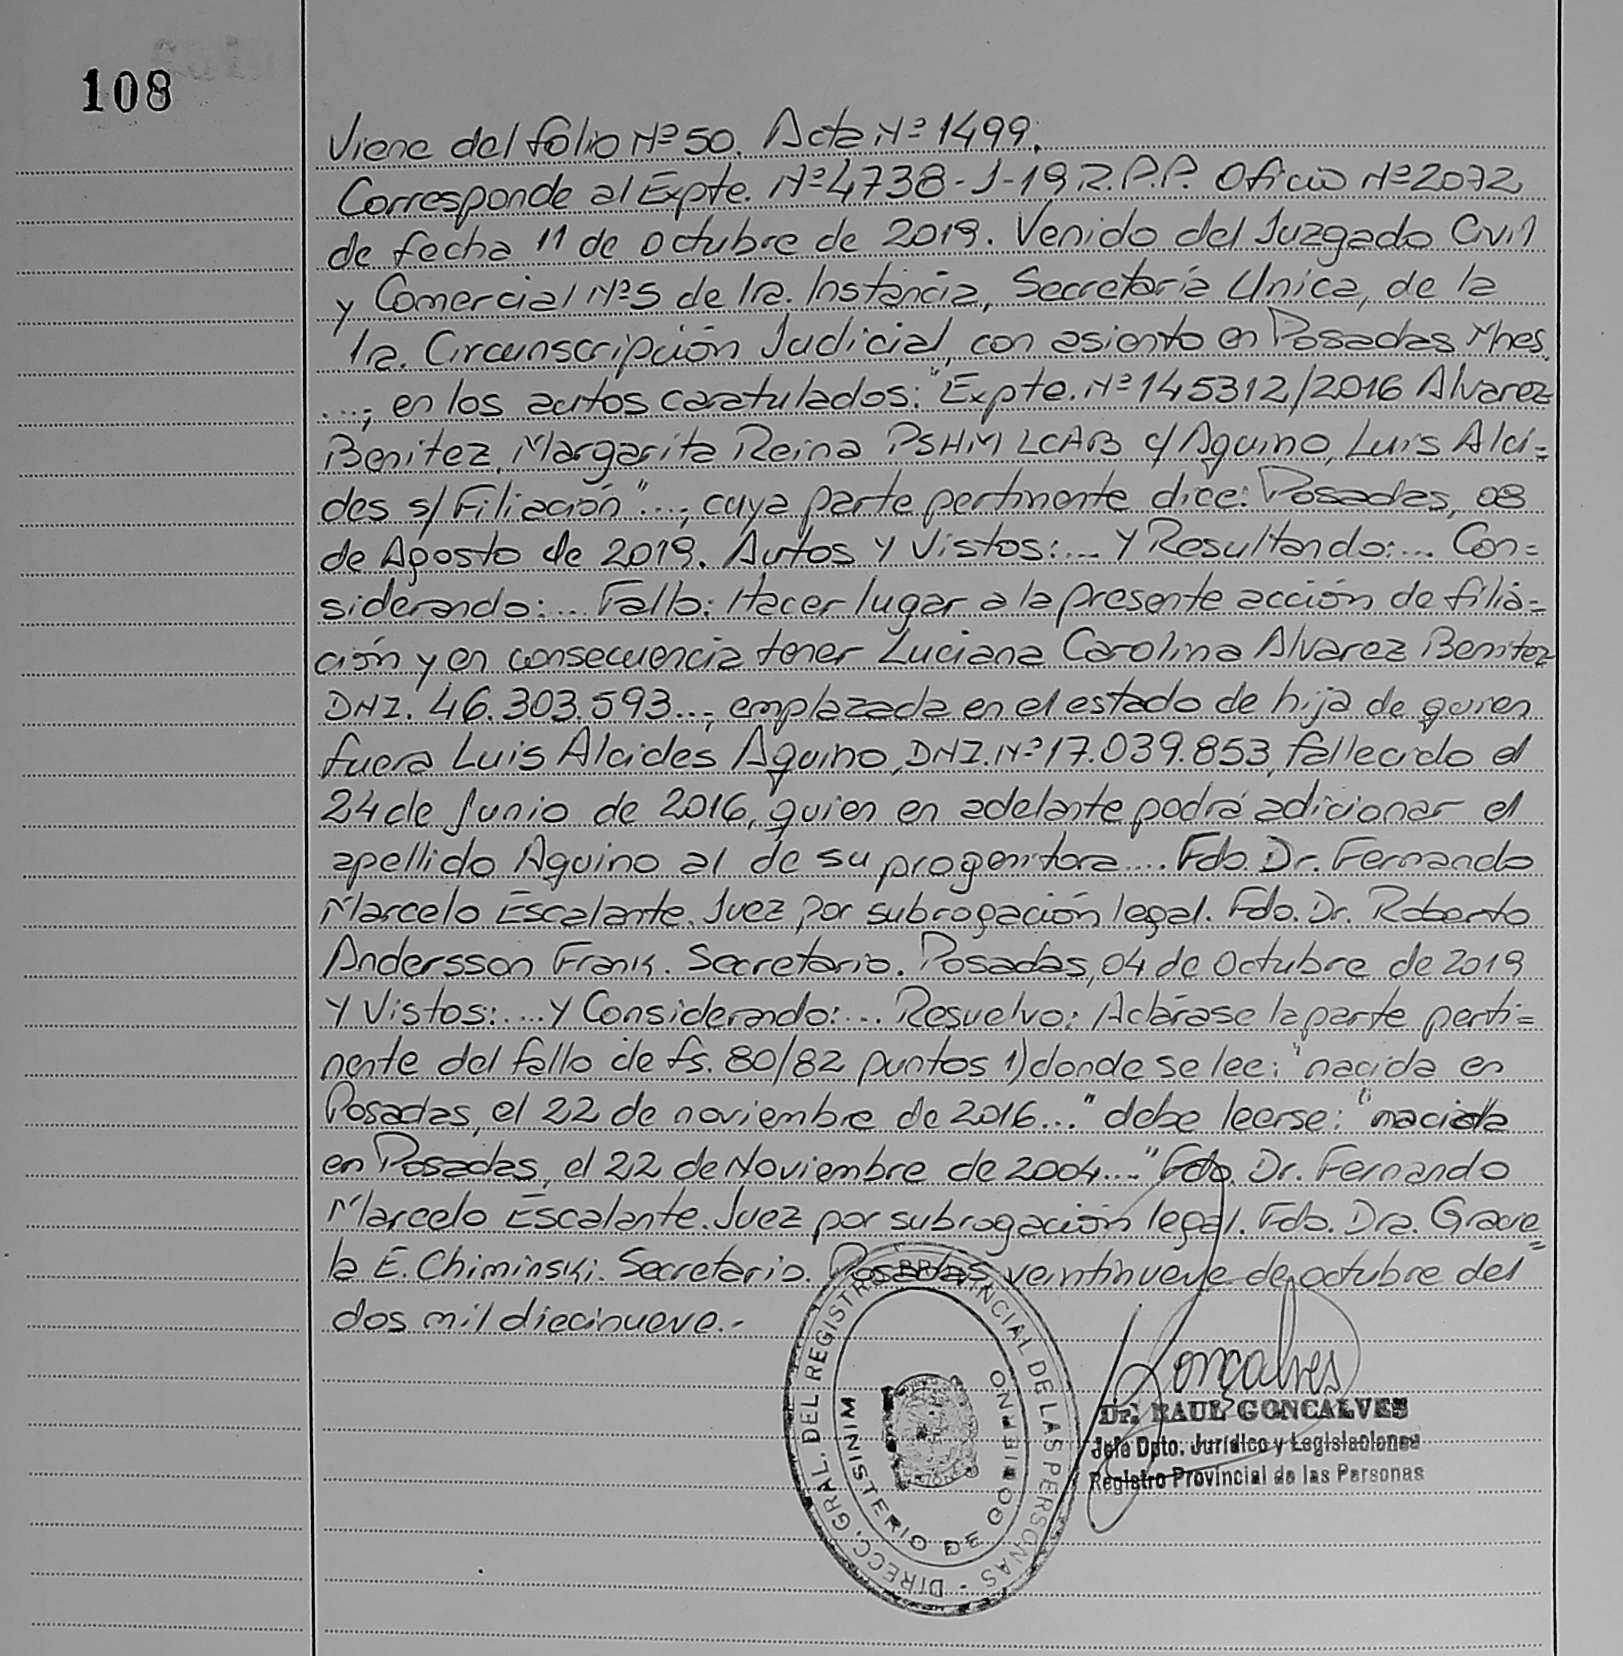 108
Viene del folio Nº 50. Acta Nº 1499.
Corresponde al Expte. Nº 4738-J-19 R.P.P. Oficio Nº 2072
de fecha 11 de octubre de 2019. Venido del Juzgado Civil
y Comercial Nº 5 de 1ra. Instancia, Secretaría Unica, de la
1ra. Circunscripción Judicial, con asiento en Posadas Mnes.
...; en los autos caratulados: "Expte. Nº 145312/2016 Alvarez
Benitez, Margarita Reina PSHM LCAB c/ Aquino, Luis Alci=
des s/ Filiación" ...; cuya parte pertinente dice: Posadas, 08
de Agosto de 2019. Autos y Vistos:... Y Resultando:... Con=
siderando:... Fallo: Hacer lugar a la presente acción de filia=
ción y en consecuencia tener Luciana Carolina Alvarez Benitez
DNI. 46.303.593...; emplazada en el estado de hija de quien
fuera Luis Alcides Aquino, DNI. Nº 17.039.853, fallecido el
24 de Junio de 2016, quien en adelante podrá adicionar el
apellido Aquino al de su progenitora.... Fdo. Dr. Fernando
Marcelo Escalante. Juez por subrogación legal. Fdo. Dr. Roberto
Andersson Frank. Secretario. Posadas, 04 de Octubre de 2019
Y Vistos:.... Y Considerando:... Resuelvo: Aclárase la parte perti=
nente del fallo de fs. 80/82 puntos 1) donde se lee: "nacida en
Posadas, el 22 de noviembre de 2016..." debe leerse: "nacida
en Posadas, el 22 de Noviembre de 2004..." Fdo. Dr. Fernando
Marcelo Escalante. Juez por subrogación legal. Fdo. Dra. Gracie=
la E. Chiminski. Secretario. Posadas, veintinueve de octubre del
dos mil diecinueve.-
DIRECC. GRAL. DEL REGISTRO PROVINCIAL DE LAS PERSONAS -
MINISTERIO DE GOBIERNO
Goncalves
Dr. RAUL GONCALVES
Jefe Dpto. Jurídico y Legislaciones
Registro Provincial de las Personas